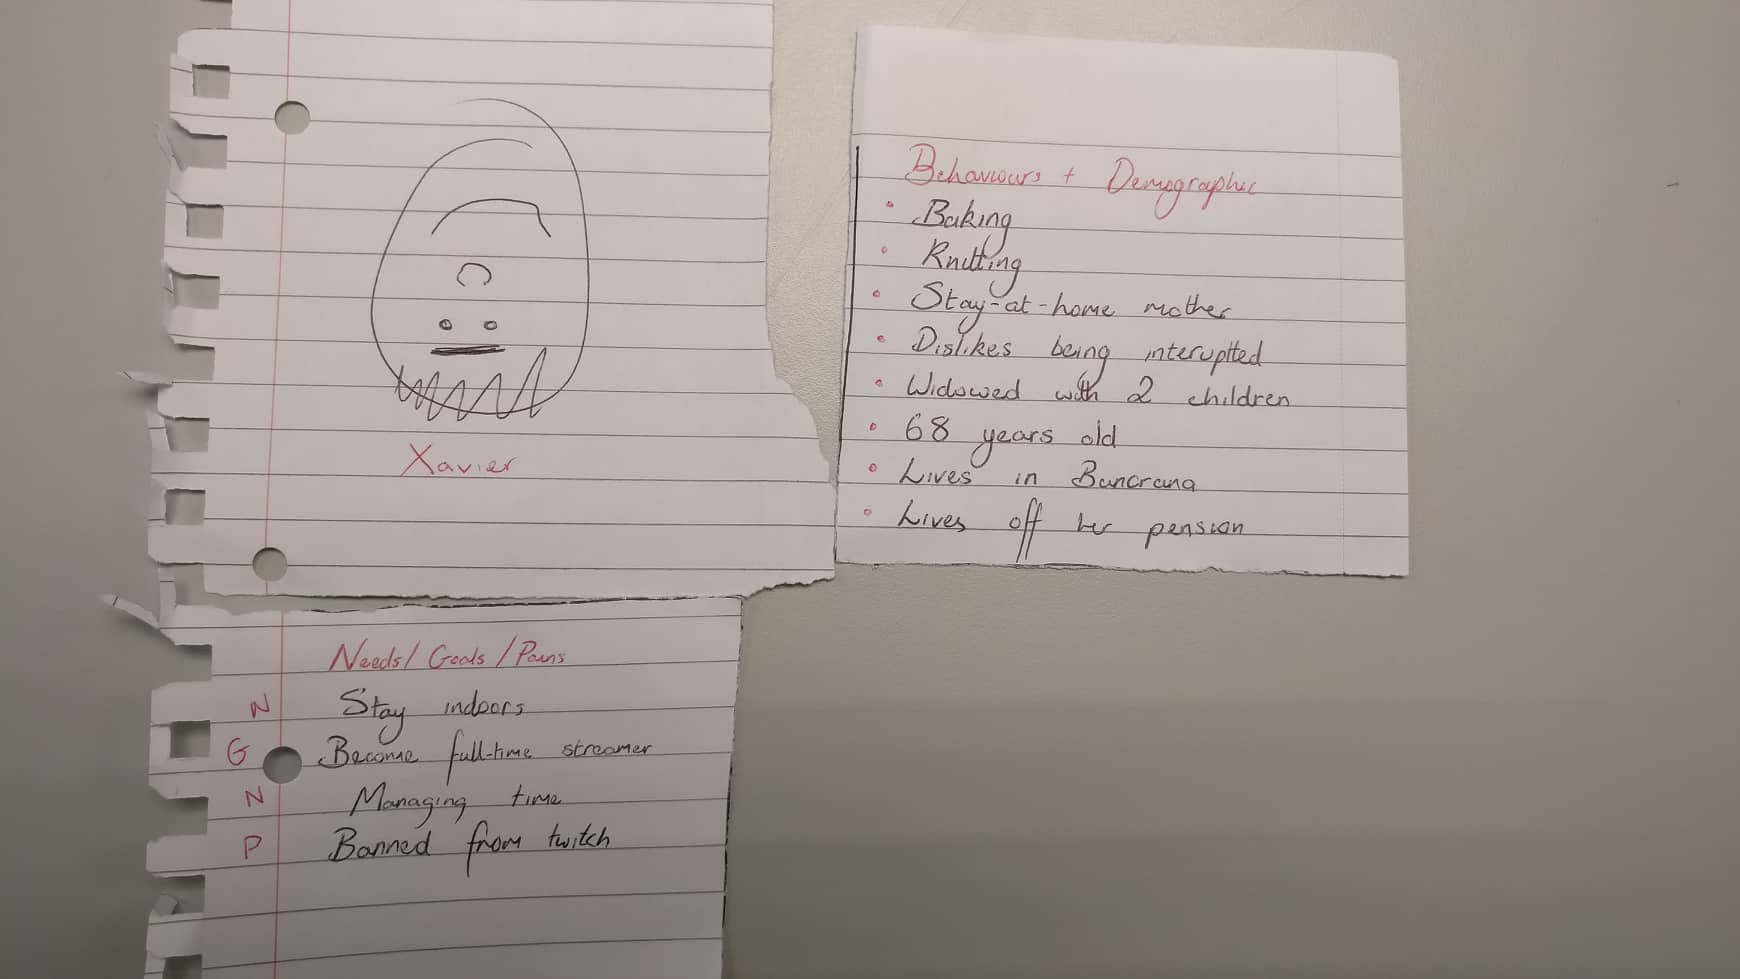 Xavier
Behaviours + Demographic
• Baking
• Knitting
• Stay-at-home mother
• Dislikes being interuptted
• Widowed with 2 children
• 68 years old
• Lives in Buncrana
• Lives off her pension
Needs/ Goals / Pains
N Stay indoors
G Become full-time streamer
N Managing time
P Banned from twitch